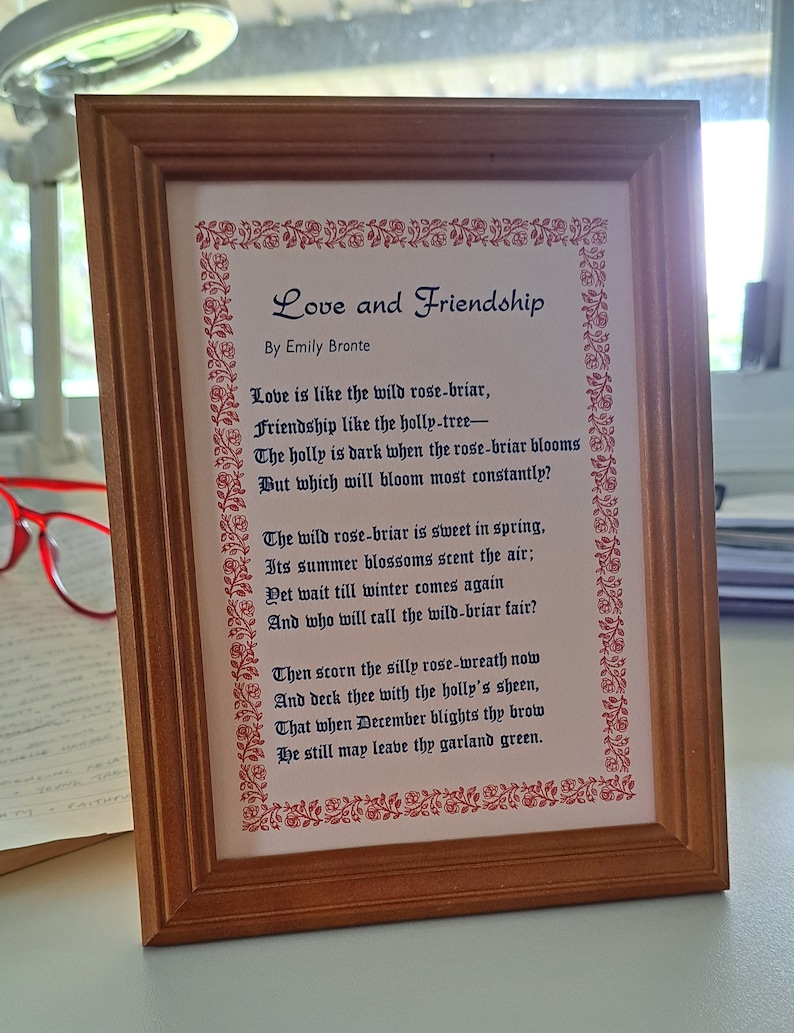 Love and Friendship
By Emily Bronte
Love is like the wild rose-briar,
Friendship like the holly-tree—
The holly is dark when the rose-briar blooms
But which will bloom most constantly?
The wild rose-briar is sweet in spring,
Its summer blossoms scent the air;
Yet wait till winter comes again
And who will call the wild-briar fair?
Then scorn the silly rose-wreath now
And deck thee with the holly's sheen,
That when December blights thy brow
He still may leave thy garland green.